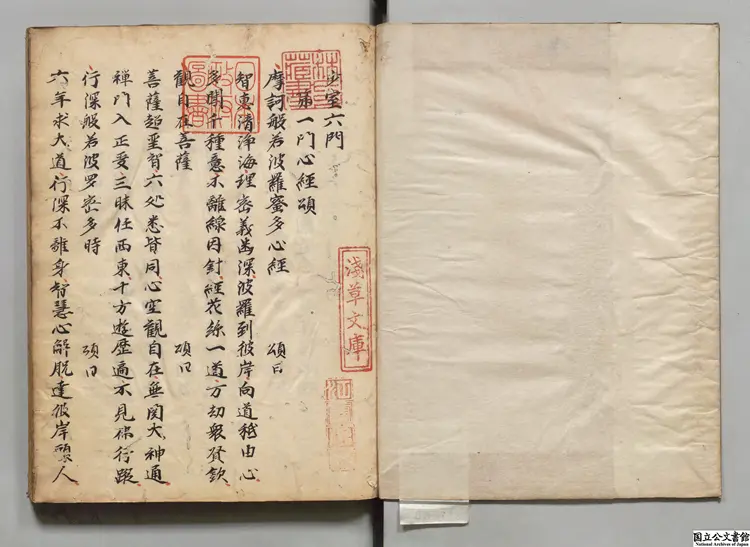 少室六門
第一門心經頌
摩訶般若波羅蜜多心經 頌曰
智恵清淨海理密義幽深波羅到彼岸向道秖由心
多聞千種意不離線因針經花絲一道方劫衆賢欽
觀自在菩薩 頌曰
菩薩超聖智六処悉皆同心空觀自在無閡大神通
禅門入正受三昧任西東十方遊歴遍不見佛行蹤
行深般若波罗密多時 頌曰
六年求大道行深不離身智慧心解脱達彼岸頭人
林氏藏書
日本政府圖書
淺草文庫
国立公文書館
National Archives of Japan